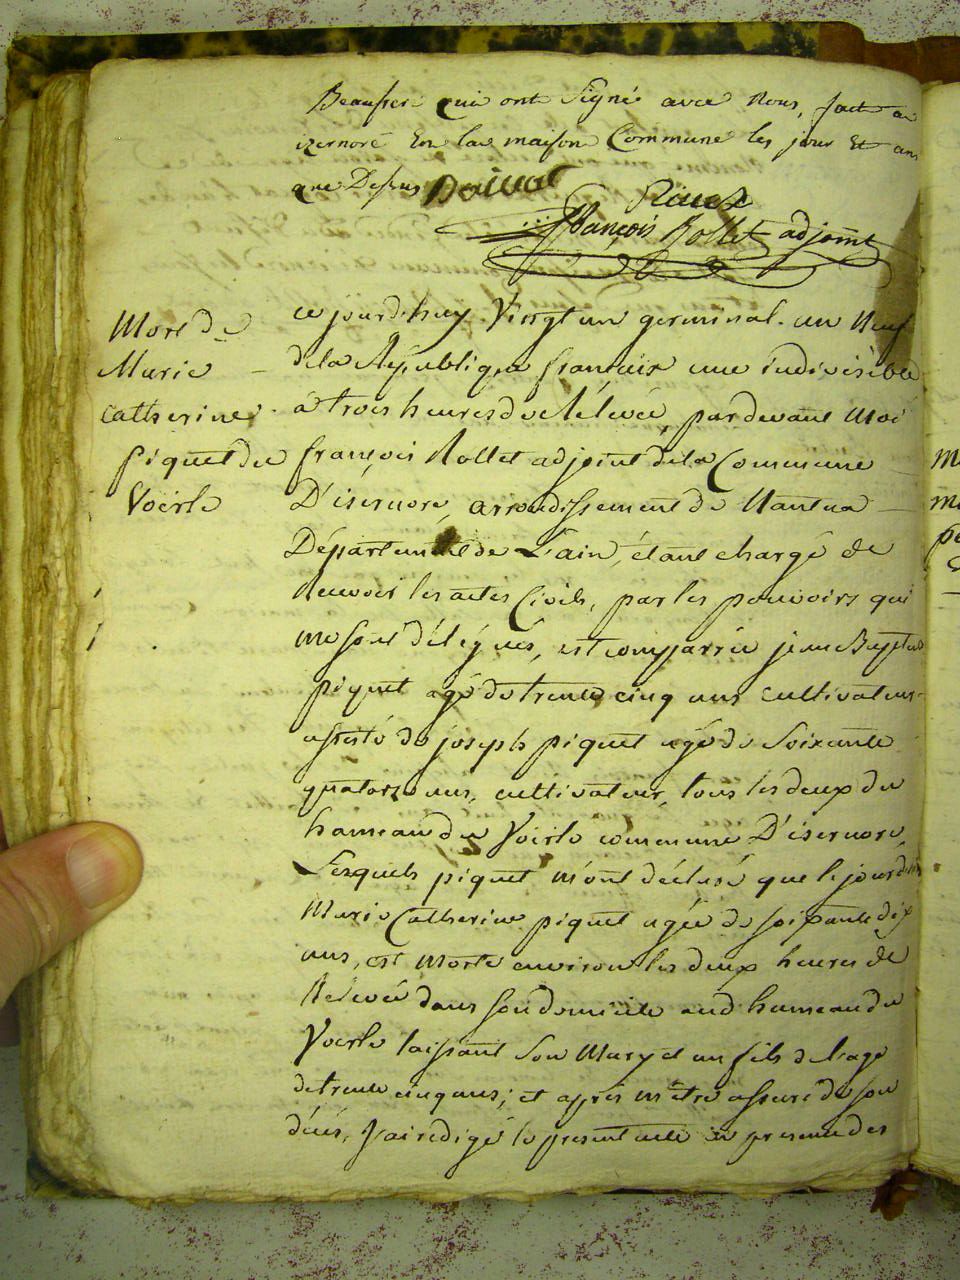 Beaufrere qui ont Signé avec Nous, fait a
izernore En la maison Commune les jour Et an
que Dessus
François Rollet adjoint
Mort de
Marie
Catherine
piquet de
Voerle
ce jourd'huy Vingt un germinal an Neuf
de la République française une indivisible
à trois heures de Relevée, pardevant Moi
françois Rollet adjoint de la Commune
D'isernore, arrondissement de Nantua
Département de L'ain, étant chargé de
Recevoir les actes Civils, par les pouvoirs qui
me sont délégués, est comparrée jean Baptiste
piquet agé de trente cinq ans cultivateur
assisté de joseph piquet agé de Soixante
quatorze ans, cultivateur, tous les deux du
hameau de Voerle commune D'isernore,
Lesquels piquet m'ont déclaré que le jour d'hier
Marie Catherine piquet agée de soixante dix
ans, est morte environ les deux heures de
Relevée dans son domicile aud hameau de
Voerle laissant Son Mary et un fils de l'age
de trente cinq ans; et après m'etre assuré de son
décés, J'ai redigé le present acte en presence des